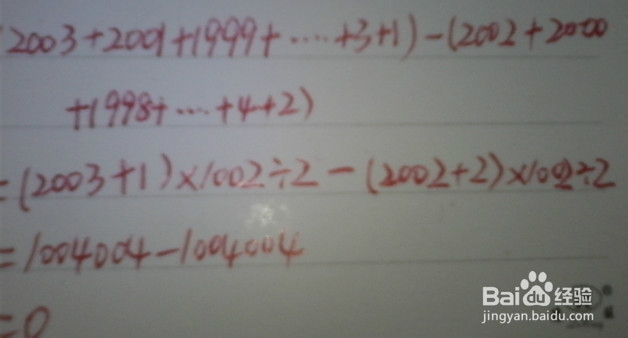 (2003+2001+1999+……+3+1)-(2002+2000
+1998+……+4+2)
=(2003+1)×1002÷2-(2002+2)×1002÷2
=1004004-1004004
=0
Baidu经验
jingyan.baidu.com